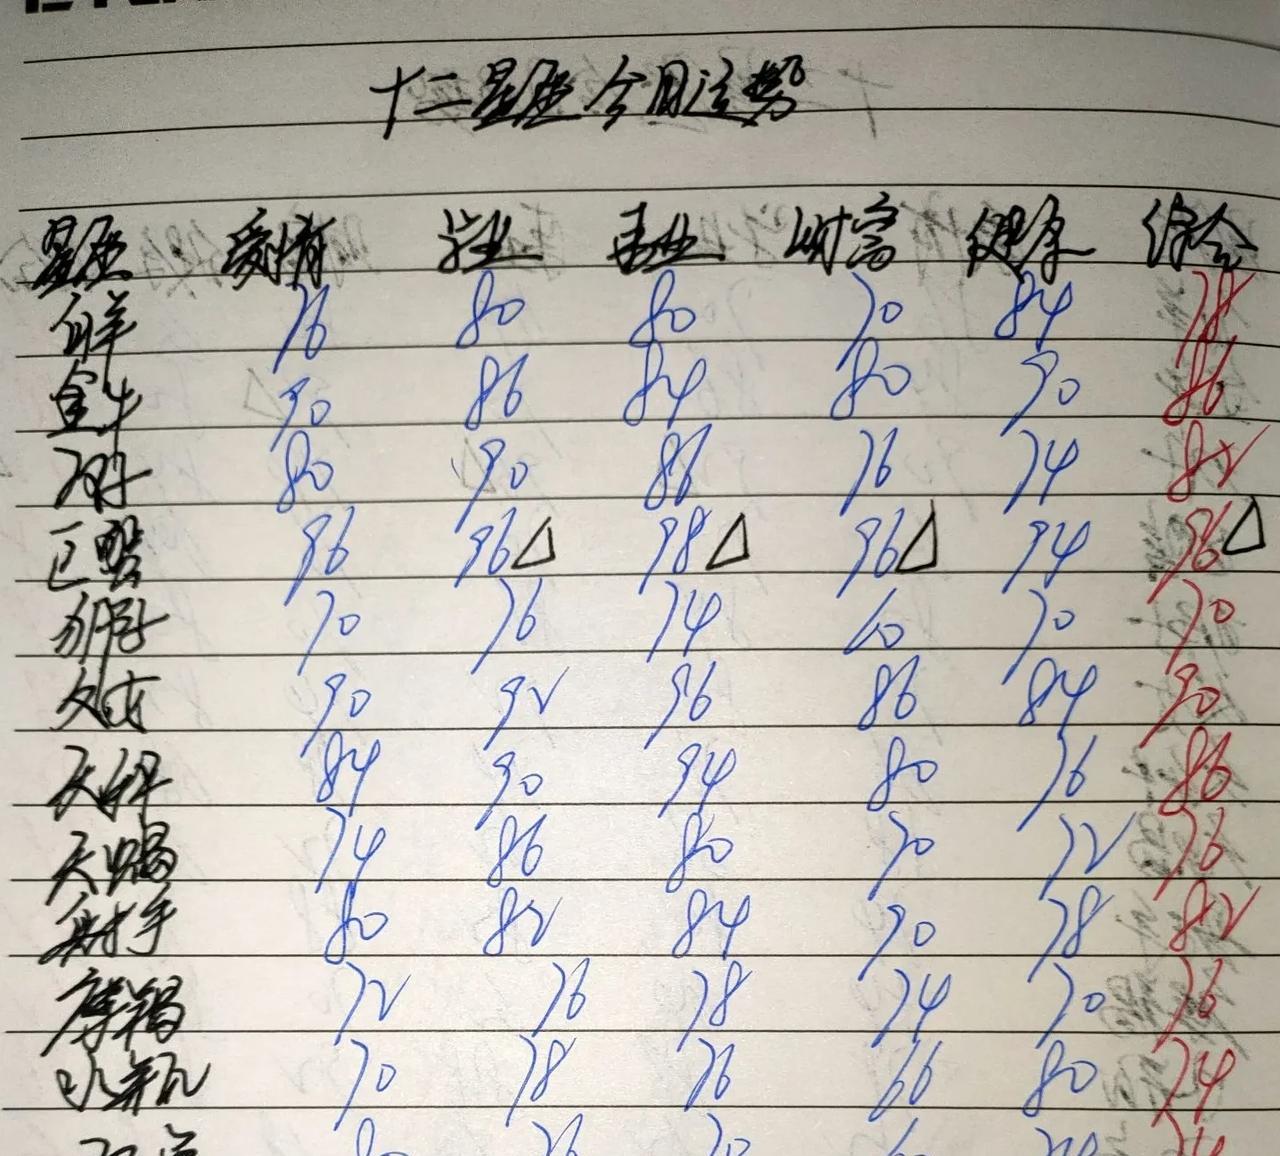 十二星座今日运势
星座 爱情 学业 事业 财富 健康 综合
白羊 76 80 80 70 84 78
金牛 90 86 84 80 90 86
双子 80 90 86 76 74 82
巨蟹 96 96△ 98△ 96△ 94 96△
狮子 70 76 74 60 70 70
处女 90 92 96 86 84 90
天秤 84 90 94 80 76 86
天蝎 74 86 80 70 72 76
射手 80 82 84 90 78 82
摩羯 72 76 78 74 70 76
水瓶 70 78 76 66 80 74